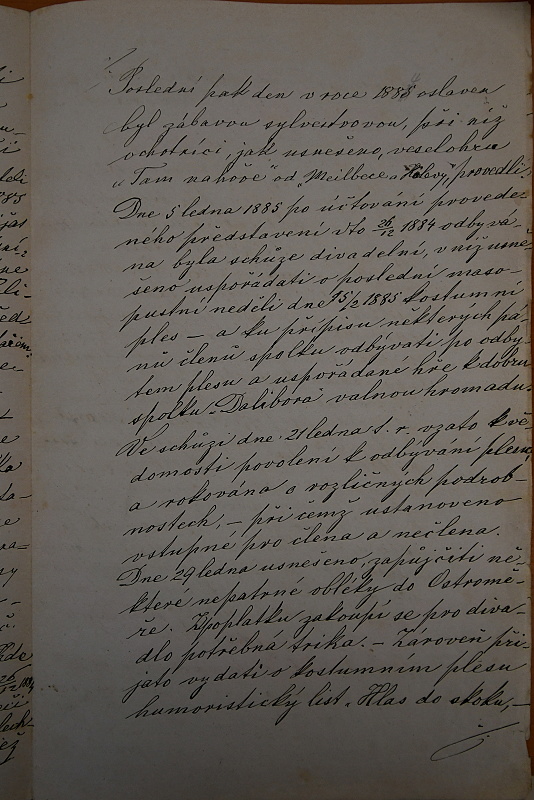 Poslední pak den v roce 1884 oslaven
byl zábavou sylvestrovou, při níž
ochotníci jak usnešeno, veselohru
„Tam nahoře" od „Meilbece a Halévy", provedli.
Dne 5 ledna 1885 po účtování provede-
ného představení v to 26/12 1884 odbývá-
na byla schůze divadelní, v níž usne-
šeno uspořádati o poslední maso-
pustní neděli dne 15/2 1885 kostumní
ples — a ku přípisu některých pá-
nů členů spolku odbývati po odby-
tém plesu a uspořádané hře k dobru
spolku „Dalibora" valnou hromadu.
Ve schůzi dne 21 ledna t. r. vzato k vě-
domosti povolení k odbývání plesu,
a rokována o rozličných podrob-
nostech, — při čemž ustanoveno
vstupné pro člena a nečlena.
Dne 29 ledna usnešeno, zapůjčiti ně-
které nepatrné obleky do Ostromě-
ře. Z poplatku zakoupí se pro diva-
dlo potřebná trika. — Zároveň při-
jato vydati o kostumním plesu
humoristický list „Hlas do skoku, —